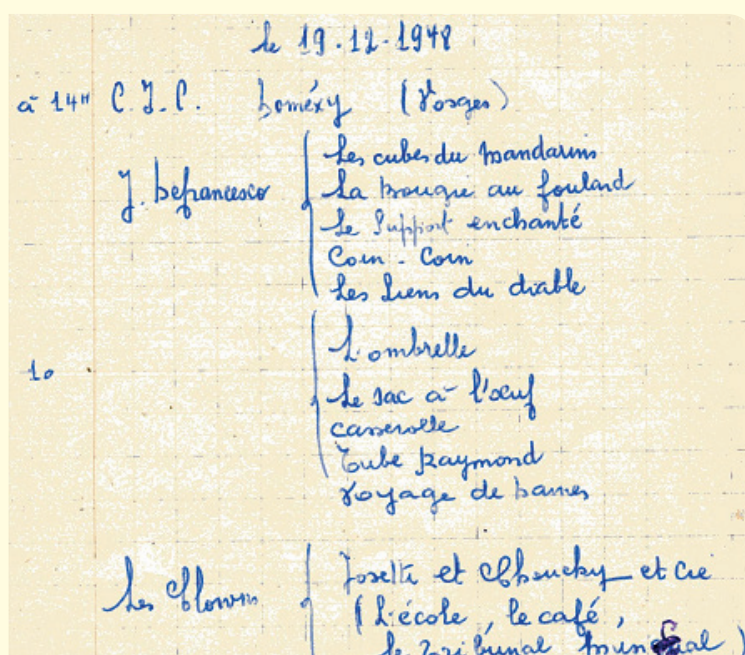 le 19.12.1948
à 14H C.J.C.Ноméxy (Vosges)
J. Defrancesco
Les cubes du mandarins
La Bougie au foulard
Le Support enchanté
Coin - Coin
Les Liens du diable
10
L'ombrelle
Le sac à l'œuf
casserolle
Tube Raymond
Voyage de
Les Clowns
Josette et et Cie
(L'école, le café,
le Tribunal